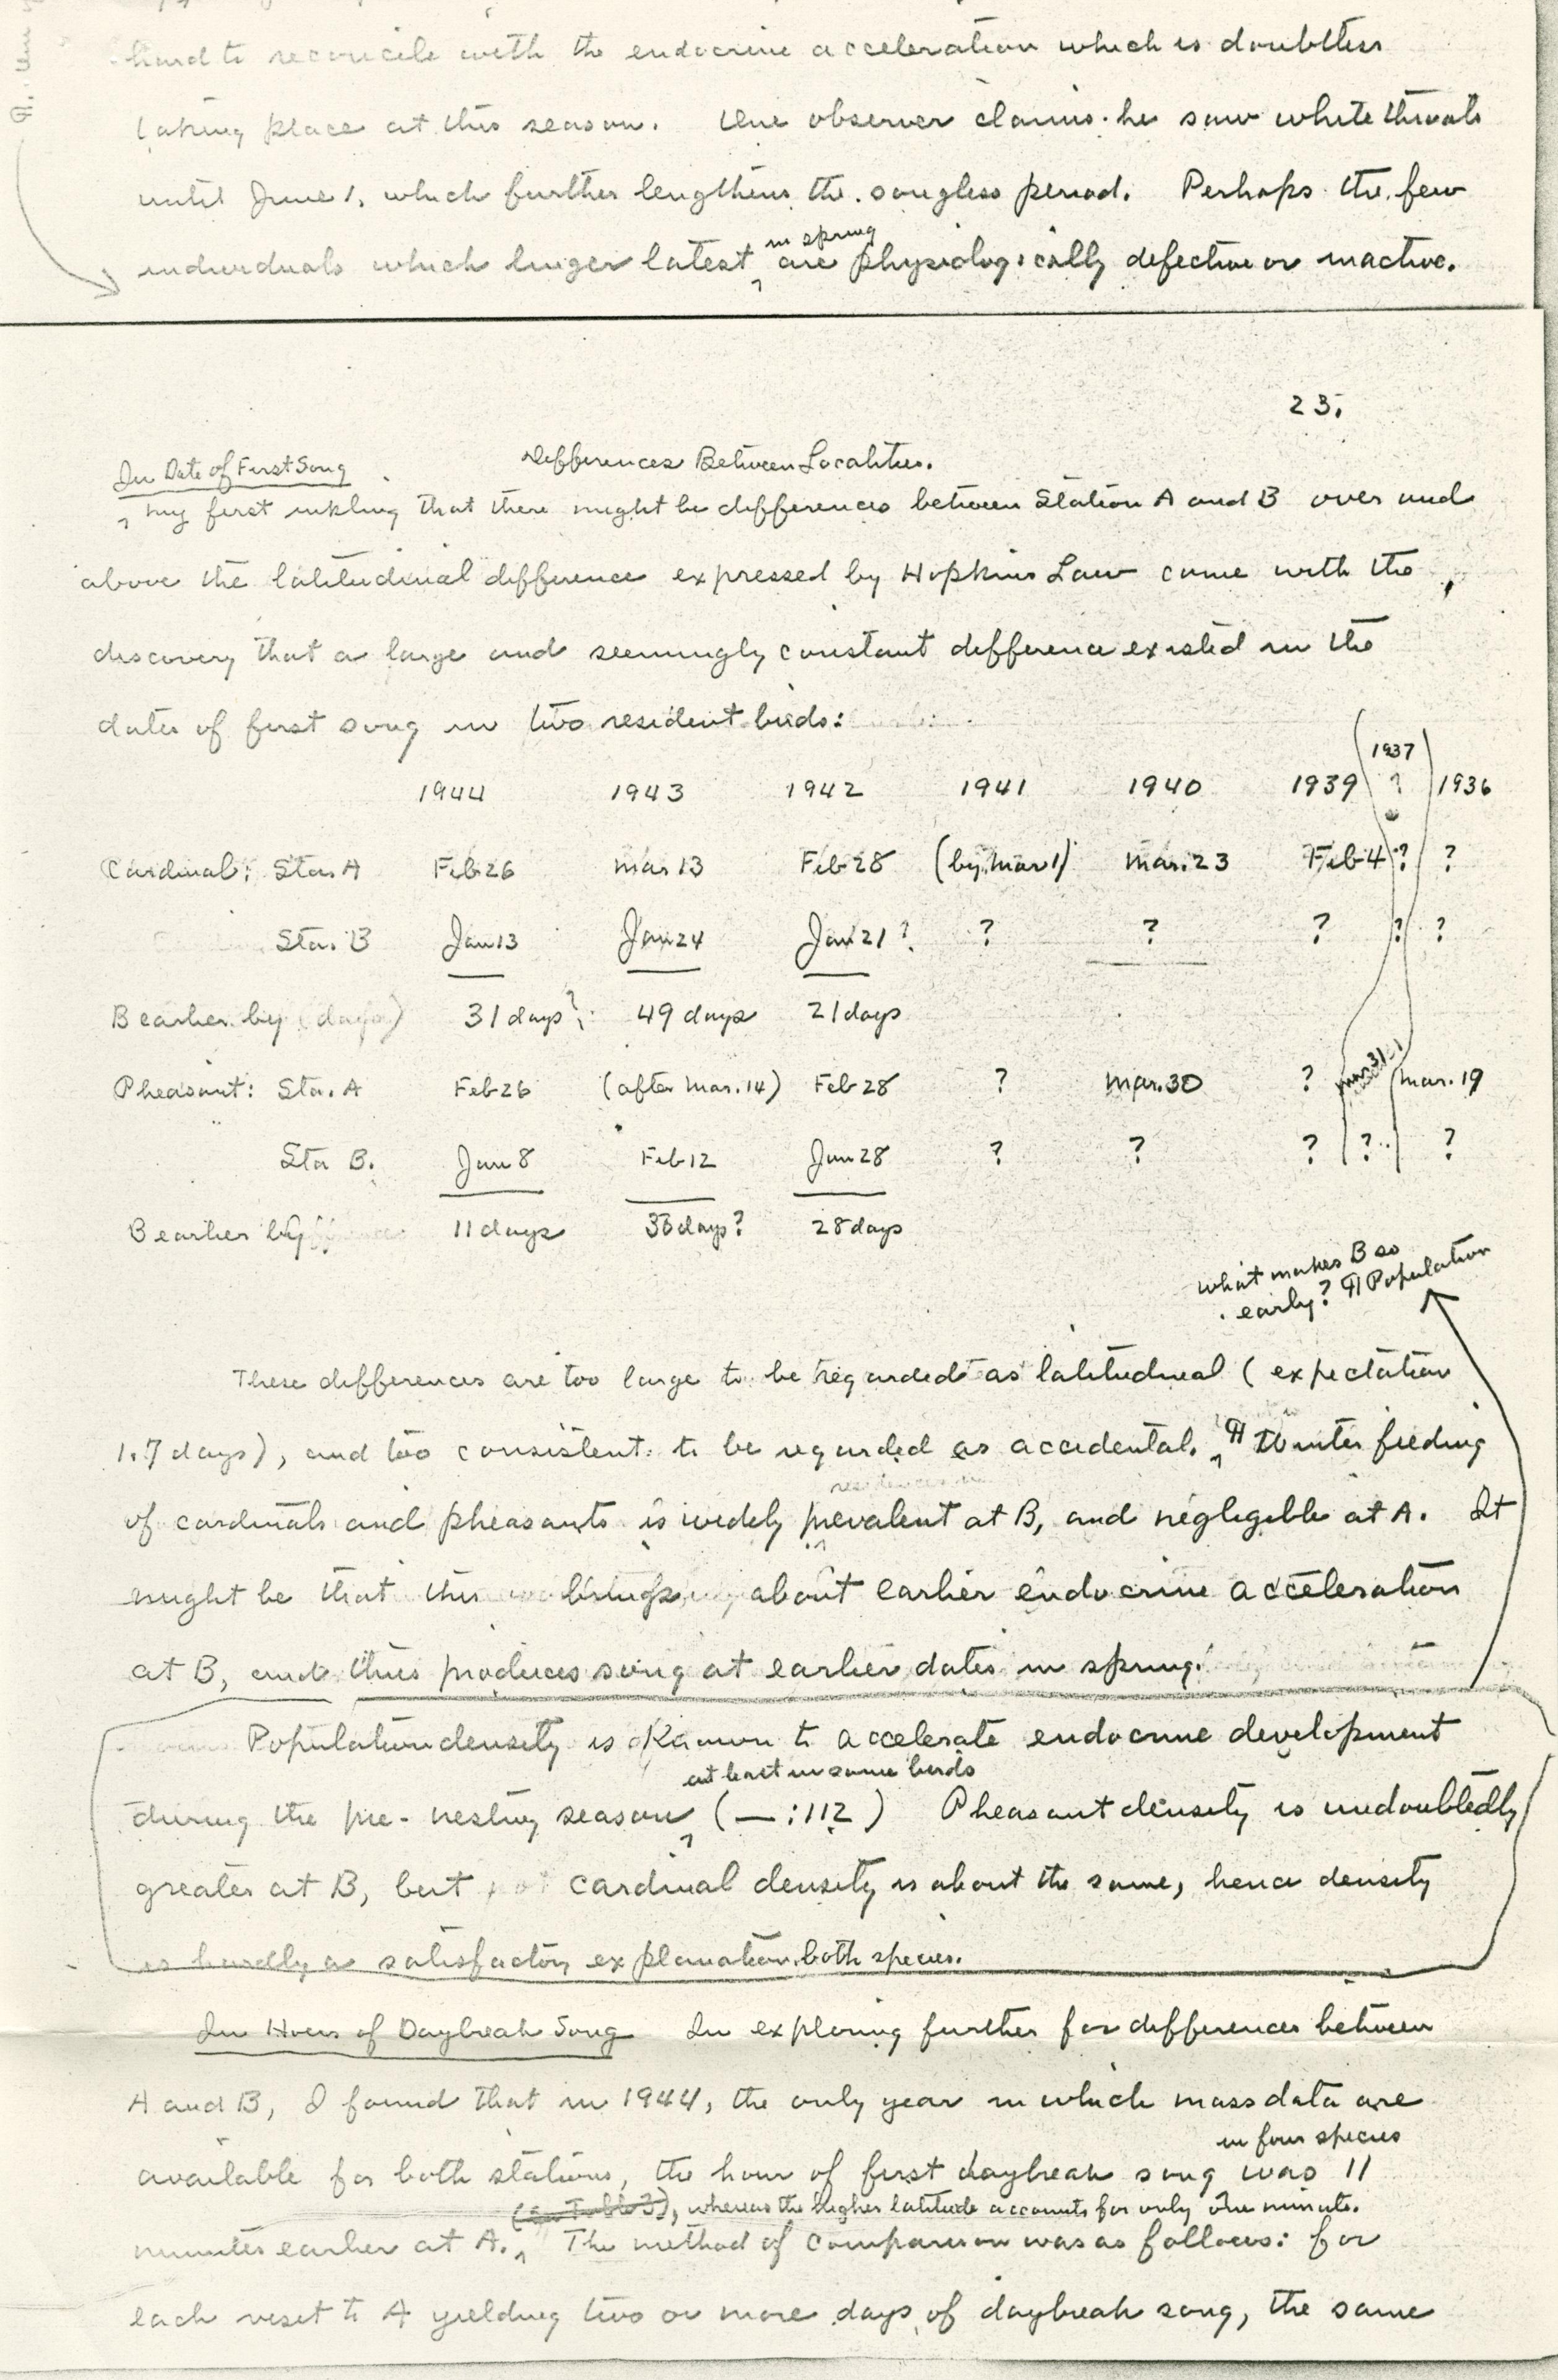 hard to reconcile with the endocrine acceleration which is doubtless
taking place at this season. One observer claims he saw whitethroats
until June 1, which further lengthens the songless period. Perhaps the few
individuals which linger latest in spring are physiologically defective or inactive.
23.
Differences Between Localities.
In Date of First Song
My first inkling that there might be differences between Station A and B over and
above the latitudinal difference expressed by Hopkins Law came with the
discovery that a large and seemingly constant difference existed in the
dates of first song in two resident birds:
1944 1943 1942 1941 1940 1939 (1937 ?) 1936
Cardinal: Sta. A Feb 26 Mar 13 Feb 28 (by Mar 1) Mar. 23 Feb 4 ? ?
Sta. B Jan 13 Jan 24 Jan 21 ? ? ? ? ? ?
B earlier by (days) 31 days? 49 days 21 days
Pheasant: Sta. A Feb 26 (after Mar. 14) Feb 28 ? Mar. 30 ? Mar 31 Mar. 19
Sta B. Jan 8 Feb 12 Jan 28 ? ? ? ? ?
B earlier by 11 days 30 days? 28 days
What makes B so
early? ¶ Population
These differences are too large to be regarded as latitudinal (expectation
1.7 days), and too consistent to be regarded as accidental. ¶ Winter feeding
of cardinals and pheasants is widely prevalent at B, and negligible at A. It
might be that this brings about earlier endocrine acceleration
at B, and thus produces song at earlier dates in spring.
Population density is known to accelerate endocrine development
at least in some birds
during the pre-nesting season (—:112) Pheasant density is undoubtedly
greater at B, but cardinal density is about the same, hence density
is hardly a satisfactory explanation both species.
In Hour of Daybreak Song In exploring further for differences between
A and B, I found that in 1944, the only year in which mass data are
in four species
available for both stations, the hour of first daybreak song was 11
(See Table 3), whereas the higher latitude accounts for only one minute.
minutes earlier at A. The method of comparison was as follows: for
each visit to A yielding two or more days of daybreak song, the same